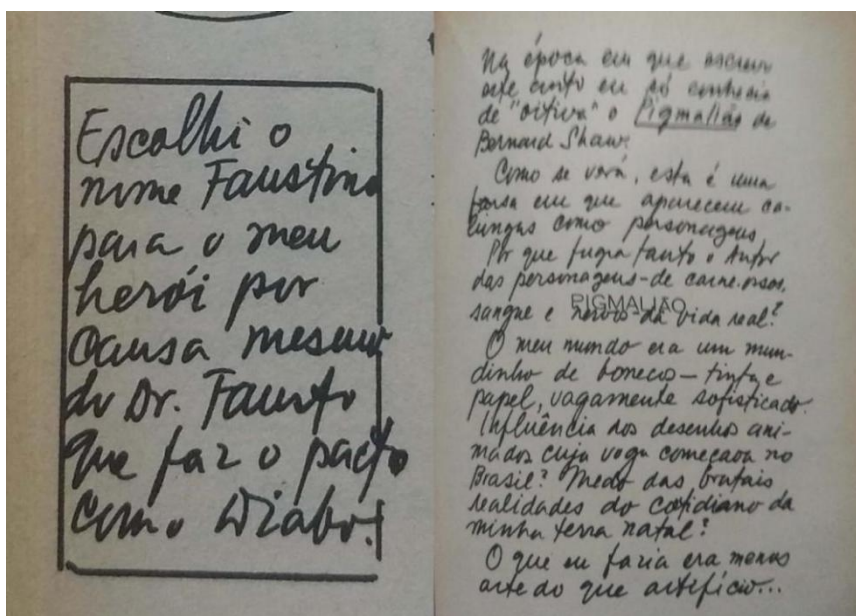 Escolhi o
nome Faustino
para o meu
herói por
causa mesmo
do Dr. Fausto
que faz o pacto
com o Diabo!
Na época em que escrevi
este conto eu só conhecia
de "oitiva" o Pigmalião de
Bernard Shaw.
Como se verá, esta é uma
farsa em que aparecem ca-
lungas como personagens
Por que fugia tanto o Autor
das personagens-de carne, ossos,
PIGMALIÃO
sangue e nervos-da vida real?
O meu mundo era um mun-
dinho de bonecos — tinta e
papel, vagamente sofisticado.
Influência dos desenhos ani-
mados cuja voga começava no
Brasil? Medo das brutais
realidades do cotidiano da
minha terra natal?
O que eu fazia era menos
arte do que artifício...